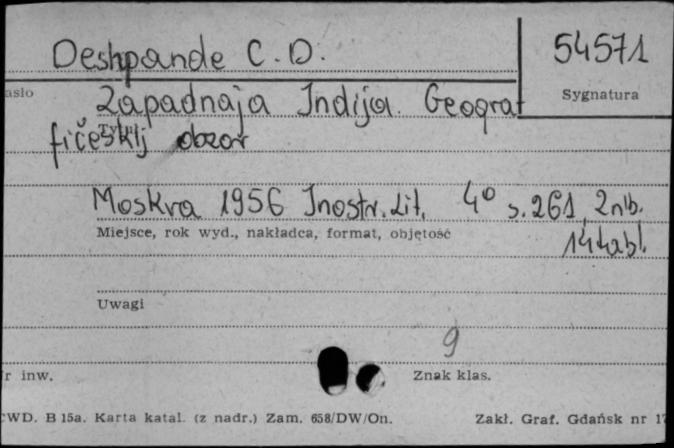 Deshpande C. D.
54571
asło
Zapadnaja Indija. Geogra
Sygnatura
fičeskij obzor
Moskva 1956 Inostr. Lit. 4° s. 261, 2 nlb.
Miejsce, rok wyd., nakładca, format, objętość
14 tabl.
Uwagi
9
r inw.
Znak klas.
CWD. B 15a. Karta katal. (z nadr.) Zam. 658/DW/On.
Zakł. Graf. Gdańsk nr 17